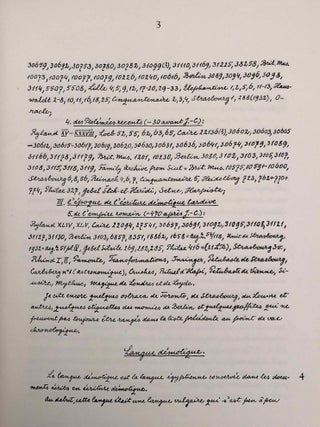 3
30659, 30692, 30753, 30780, 30782, 31099(3), 31110, 31169, 31225, 38258, Brit. Mus.
10073, 10074, 10077, 10079, 10226, 10240, 10616, Berlin 3089, 3094, 3096, 3098,
3114, 5507, 5508, Lille 4, 5, 9, 12, 17-20, 29-33, Elephantine 1, 2, 5, 6, 11-13, Haus-
waldt 2-8, 10, 11, 16, 18, 25, Cinquantenaire 2, 3, 4, Strasbourg 1, 288(1932), O-
racle;
4. des Ptolémées récents (-30 avant J.-C.):
Ryland XV-XXXVIII, Loeb 52, 55, 62, 63, 65, Caire 22136(3), 30602, 30603, 30605
31166, 31178, 31179, Brit. Mus. 1201, 10230, Berlin 3101, 3102, 3103, 3105, 3107,
3108, 3115, 3118, 3119, Family Archive from Siut = Brit. Mus. 10575, 10591-10600,
Strasbourg 6, 8, 56, Reinach 4, 6, 7, Cinquantenaire 6, Heidelberg 723, 762+770+
774, Philae 327, Gebel Sheikh el-Haridi, Setne, Harpiste,
III. L'époque de l'écriture démotique tardive
5. de l'empire romain (-470 après J.-C.):
Ryland XLIV, XLV, Caire 22094, 27541, 30691, 31092, 31095, 31108, 31121,
31127, 31130, Berlin 3103, 6857, 8351, 18862, 1658
Rhind I, II, Pamonte, Transformations, Insinger, Pétubastis de Strasbourg,
Carlsberg nº 1 (astronomique), Cruches, Rituel d'Hapi, Pétubastis de Vienne, Si-
siuire, Mythus, Magique de Londres et de Leyde.
Je cite encore quelques ostraca de Toronto, de Strasbourg, du Louvre et
autres, quelques étiquettes des momies de Berlin et quelques graffites qui ne
peuvent pas toujours être rangés dans la liste précédente au point de vue
chronologique.
Langue démotique.
La langue démotique est la langue égyptienne conservée dans les docu- 4
ments écrits en écriture démotique.
Au début, cette langue était une langue vulgaire qui s'est peu à peu